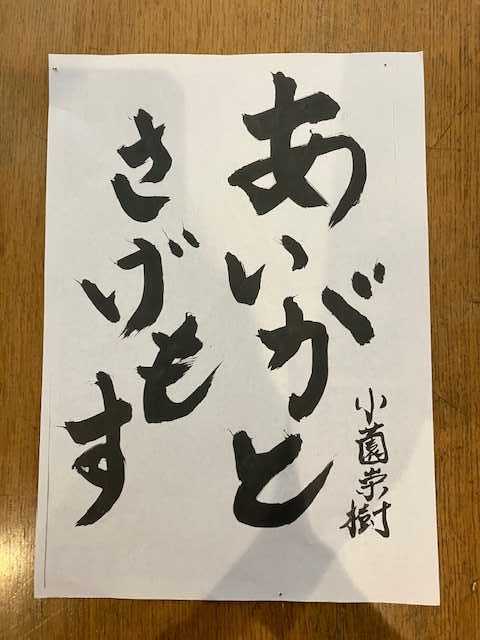 あいがと
さげもす
小薗崇樹